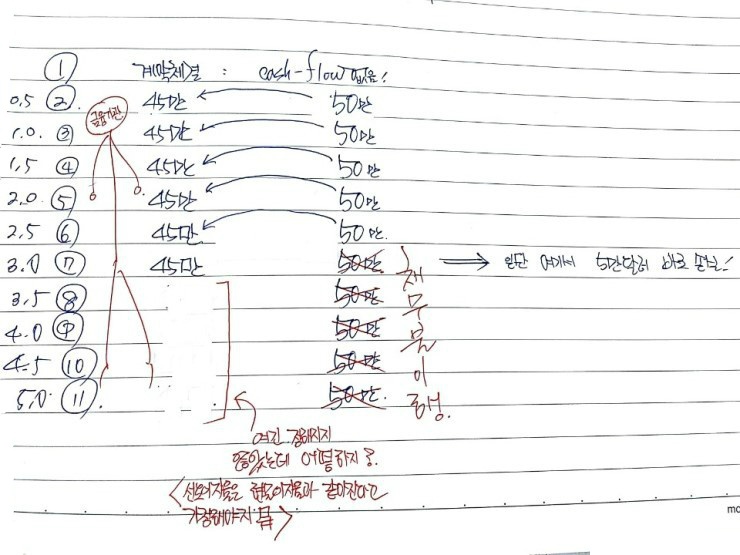 ① 계약체결 : cash-flow 없음!
0.5 ② 45만 50만
금융기관
1.0. ③ 45만 50만
1.5 ④ 45만 50만
2.0 ⑤ 45만 50만
2.5 ⑥ 45만 50만.
3.0 ⑦ 45만 50만 ⟹ 일단 여기서 5만달러 바로 손실!
3.5 ⑧ 50만
4.0 ⑨ 50만
4.5 ⑩ 50만
5.0 ⑪ 50만.
채무불이행.
여긴 정해지지
않았는데 어떻하지?
<선도이자율은 현물이자율과 같아진다고
가정해야지 뭐>